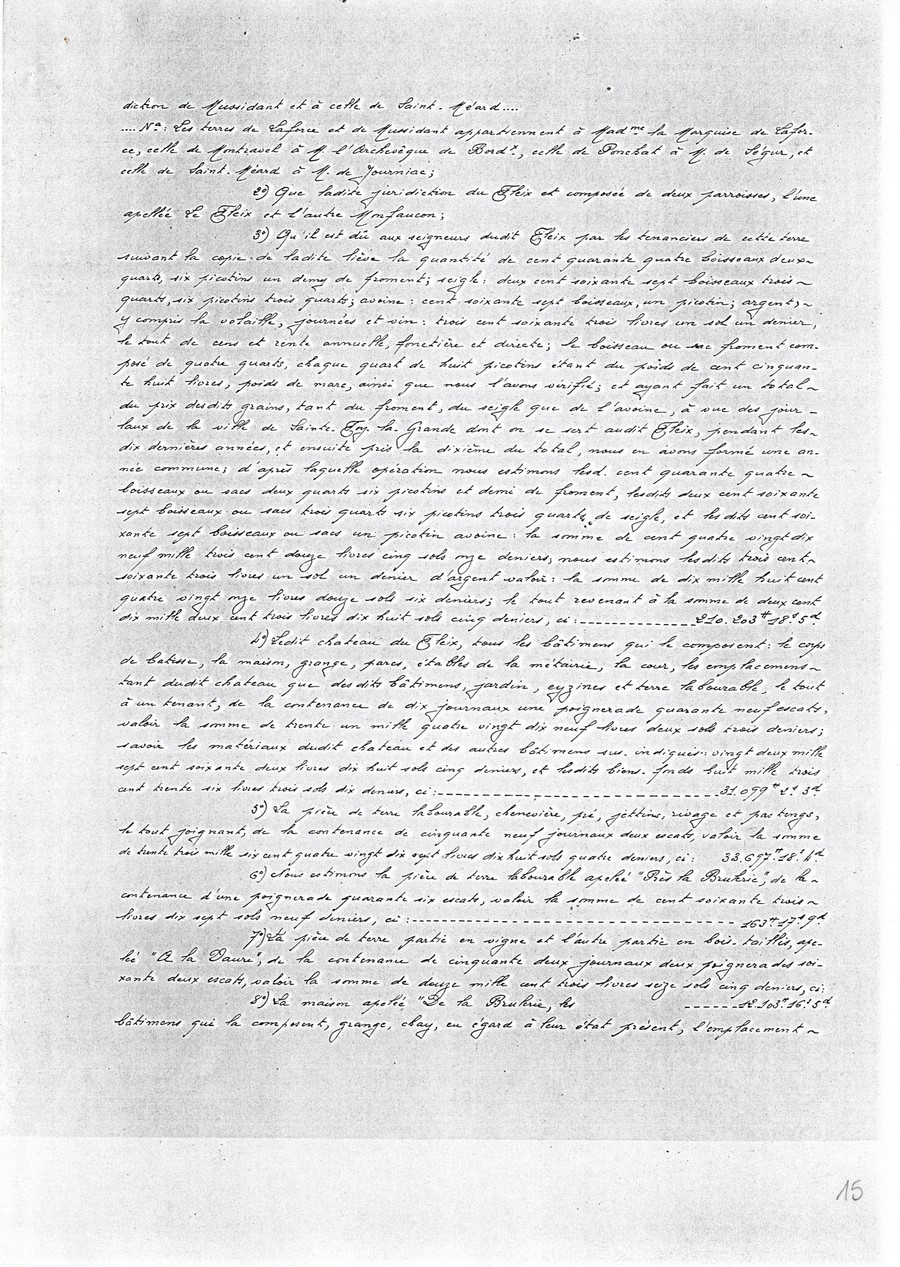 diction de Mussidant et à celle de Saint-Méard....
....Nª: Les terres de Laforce et de Mussidant appartiennent à Madme la Marquise de Lafor-
ce, celle de Montravel à M. l'Archevêque de Bordx., celle de Ponchat à M. de Ségur, et
celle de Saint-Méard à M. de Journiac;
2º) Que ladite juridiction du Fleix et composée de deux parroisses, l'une
apellée Le Fleix et l'autre Monfaucon;
3º) Qu'il est dû aux seigneurs dudit Fleix par les tenanciers de cette terre
suivant la copie de ladite liève la quantité de cent quarante quatre boisseaux deux~
quarts, six picotins un demy de froment; seigle: deux cent soixante sept boisseaux trois~
quarts, six picotins trois quarts; avoine: cent soixante sept boisseaux, un picotin; argent,~
y compris la volaille, journées et vin: trois cent soixante trois livres un sol un denier,
le tout de cens et rente annuelle, foncière et directe; le boisseau ou sac froment com-
posé de quatre quarts, chaque quart de huit picotins étant du poids de cent cinquan-
te huit livres, poids de marc, ainsi que nous l'avons vérifié; et ayant fait un total~
du prix desdits grains, tant du froment, du seigle que de l'avoine, à vue des four-
leaux de la ville de Sainte-Foy-la-Grande dont on se sert audit Fleix, pendant les~
dix dernières années, et ensuite pris la dixième du total, nous en avons formé une an-
née commune; d'après laquelle opération nous estimons lesd. cent quarante quatre~
boisseaux ou sacs deux quarts six picotins et demi de froment, lesdits deux cent soixante
sept boisseaux ou sacs trois quarts six picotins trois quarts de seigle, et lesdits cent soi-
xante sept boisseaux ou sacs un picotin avoine: la somme de cent quatre vingt dix
neuf mille trois cent douze livres cinq sols onze deniers; nous estimons lesdits trois cent~
soixante trois livres un sol un denier d'argent valoir: la somme de dix mille huit cent
quatre vingt onze livres douze sols six deniers; le tout revenant à la somme de deux cent
dix mille deux cent trois livres dix huit sols cinq deniers, ci:------------210.203# 18s 5d
4º) Ledit chateau du Fleix, tous les bâtimens qui le composent: le corps
de batisse, la maison, grange, parcs, étables de la métairie, la cour, les emplacemens~
tant dudit chateau que desdits bâtimens, jardin, eyzines et terre labourable, le tout
à un tenant, de la contenance de dix journaux une poignerade quarante neuf escats,
valoir la somme de trente un mille quatre vingt dix neuf livres deux sols trois deniers;
savoir les matériaux dudit chateau et des autres bâtimens sus-indiqués: vingt deux mille
sept cent soixante deux livres dix huit sols cinq deniers, et lesdits biens-fonds huit mille trois
cent trente six livres trois sols dix deniers, ci:------------31.099# 2s 3d
5º) La pièce de terre labourable, chenevière, pré, jettins, rivage et pastengs,
le tout joignant, de la contenance de cinquante neuf journaux deux escats, valoir la somme
de trente trois mille six cent quatre vingt dix sept livres dix huit sols quatre deniers, ci: 33.697# 18s 4d
6º) Nous estimons la pièce de terre labourable apelée "Près la Bruhrie", de la~
contenance d'une poignerade quarante six escats, valoir la somme de cent soixante trois~
livres dix sept sols neuf deniers, ci:------------163# 17s 9d
7º) La pièce de terre partie en vigne et l'autre partie en bois-taillis, ape-
lée "A la Vaure", de la contenance de cinquante deux journaux deux poignerades soi-
xante deux escats, valoir la somme de douze mille cent trois livres seize sols cinq deniers, ci:
8º) La maison apelée "De la Bruhrie, les ------12.103# 16s 5d
bâtimens qui la composent, grange, chay, eu égard à leur état présent, l'emplacement~
15